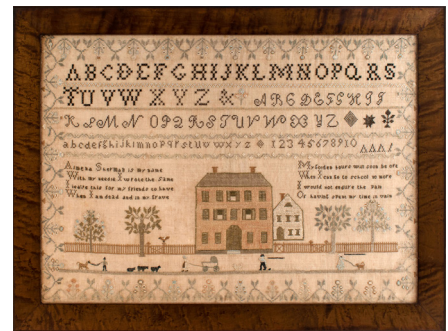 ABCDEFGHIJKLMNOPQRS
TUVWXYZ & ABCDEFGHIJ
KLMNOPQRSTUVWXYZ
abcdefghijklmnopqrstuvwxyz 1234567891O
Sherman is my name
With my needle I wrote the same
I wrote this for my friends to have
When I am dead and in my Grave
My school years must soon be ore
When I can Go to school no more
I would not endure the Pain
Of having spent my time in vain